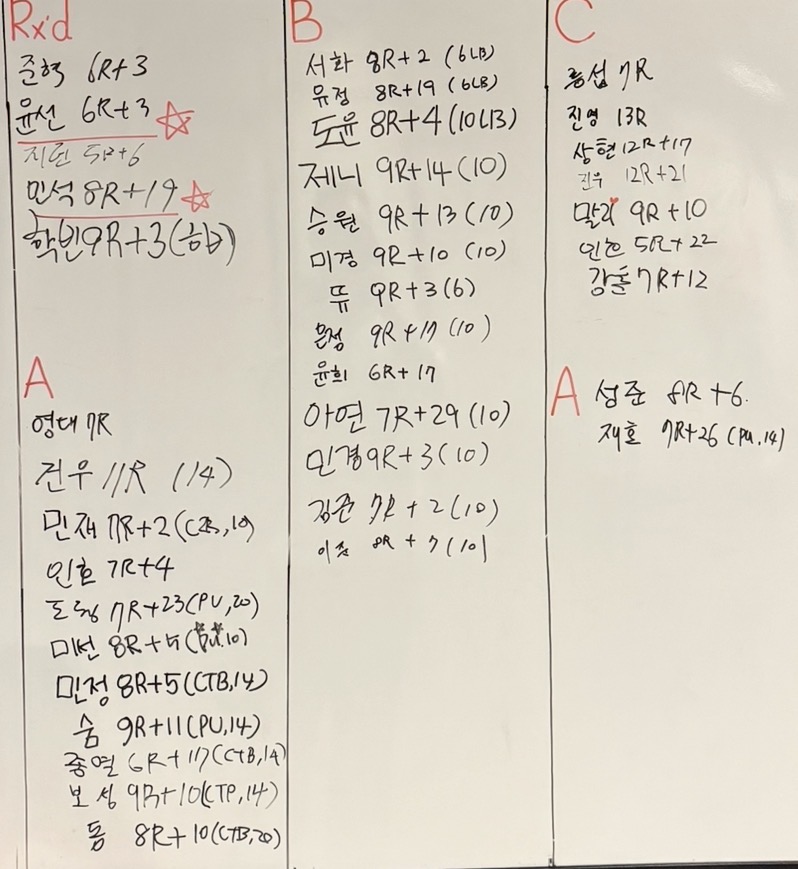 Rx'd
준혁 6R+3
윤선 6R+3
5R+6
민석 8R+19
학빈 9R+3(하바)
A
영대 7R
건우 11R (14)
민재 7R+2(C2B,10)
인호 7R+4
7R+23(PU,20)
미선 8R+5(PU.10)
민정 8R+5(CTB,14)
숨 9R+11(PU,14)
종열 6R+17(CTB,14)
보성 9R+10(CTP,14)
통 8R+10(CTB,20)
B
서화 8R+2 (6LB)
유정 8R+19 (6LB)
도윤 8R+4(10LB)
제니 9R+14(10)
승원 9R+13(10)
미경 9R+10 (10)
뜌 9R+3(6)
은정 9R+17 (10)
윤희 6R+17
아연 7R+29(10)
민경 9R+3(10)
김준 7R+2(10)
8R+7(10)
C
7R
진영 13R
상현 12R+17
진우 12R+21
9R+10
인호 5R+22
7R+12
A 성준 8R+6.
재호 7R+26(PU,14)